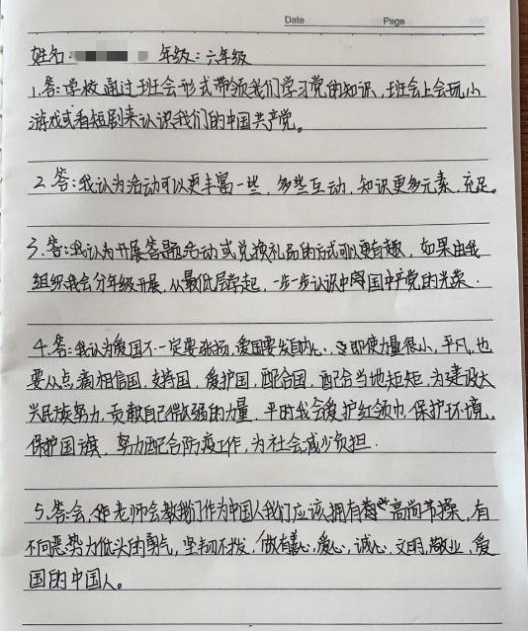 Date Page
姓名: 年级:六年级
1.答:学校通过班会形式带领我们学习党的知识,班会上会玩小
游戏或看短剧来认识我们的中国共产党。
2.答:我认为活动可以更丰富一些,多些互动,知识更多元素,充足。
3.答:我认为开展答题活动或兑换礼品的方式可以更有趣,如果由我
组织我会分年级开展,从最低层学起,一步一步认识中国中产党的光荣.
4.答:我认为爱国不一定要张扬,爱国要发自内心,即使力量很小,平凡,也
要从点滴相信国,支持国,爱护国,配合国,配合当地矩矩,为建设大
兴民族努力,贡献自己微弱的力量,平时我会爱护红领巾,保护环境,
保护国旗,努力配合防疫工作,为社会减少负担.
5.答:会,老师会教我们作为中国人我们应该拥有着高尚节操,有
不向恶势力低头的勇气,坚韧不拔,做有善心,爱心,诚心,文明,敬业,爱
国的中国人。